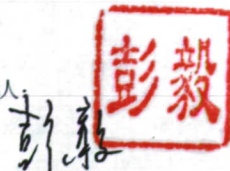 彭毅
彭毅